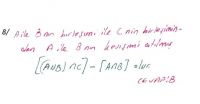 8/ A ile B nin birleşimi ile C nin birleşimin-
den A ile B nin kesişimi atılmış
[(A∪B) ∩C] - [A∩B] =
CEVAP:B